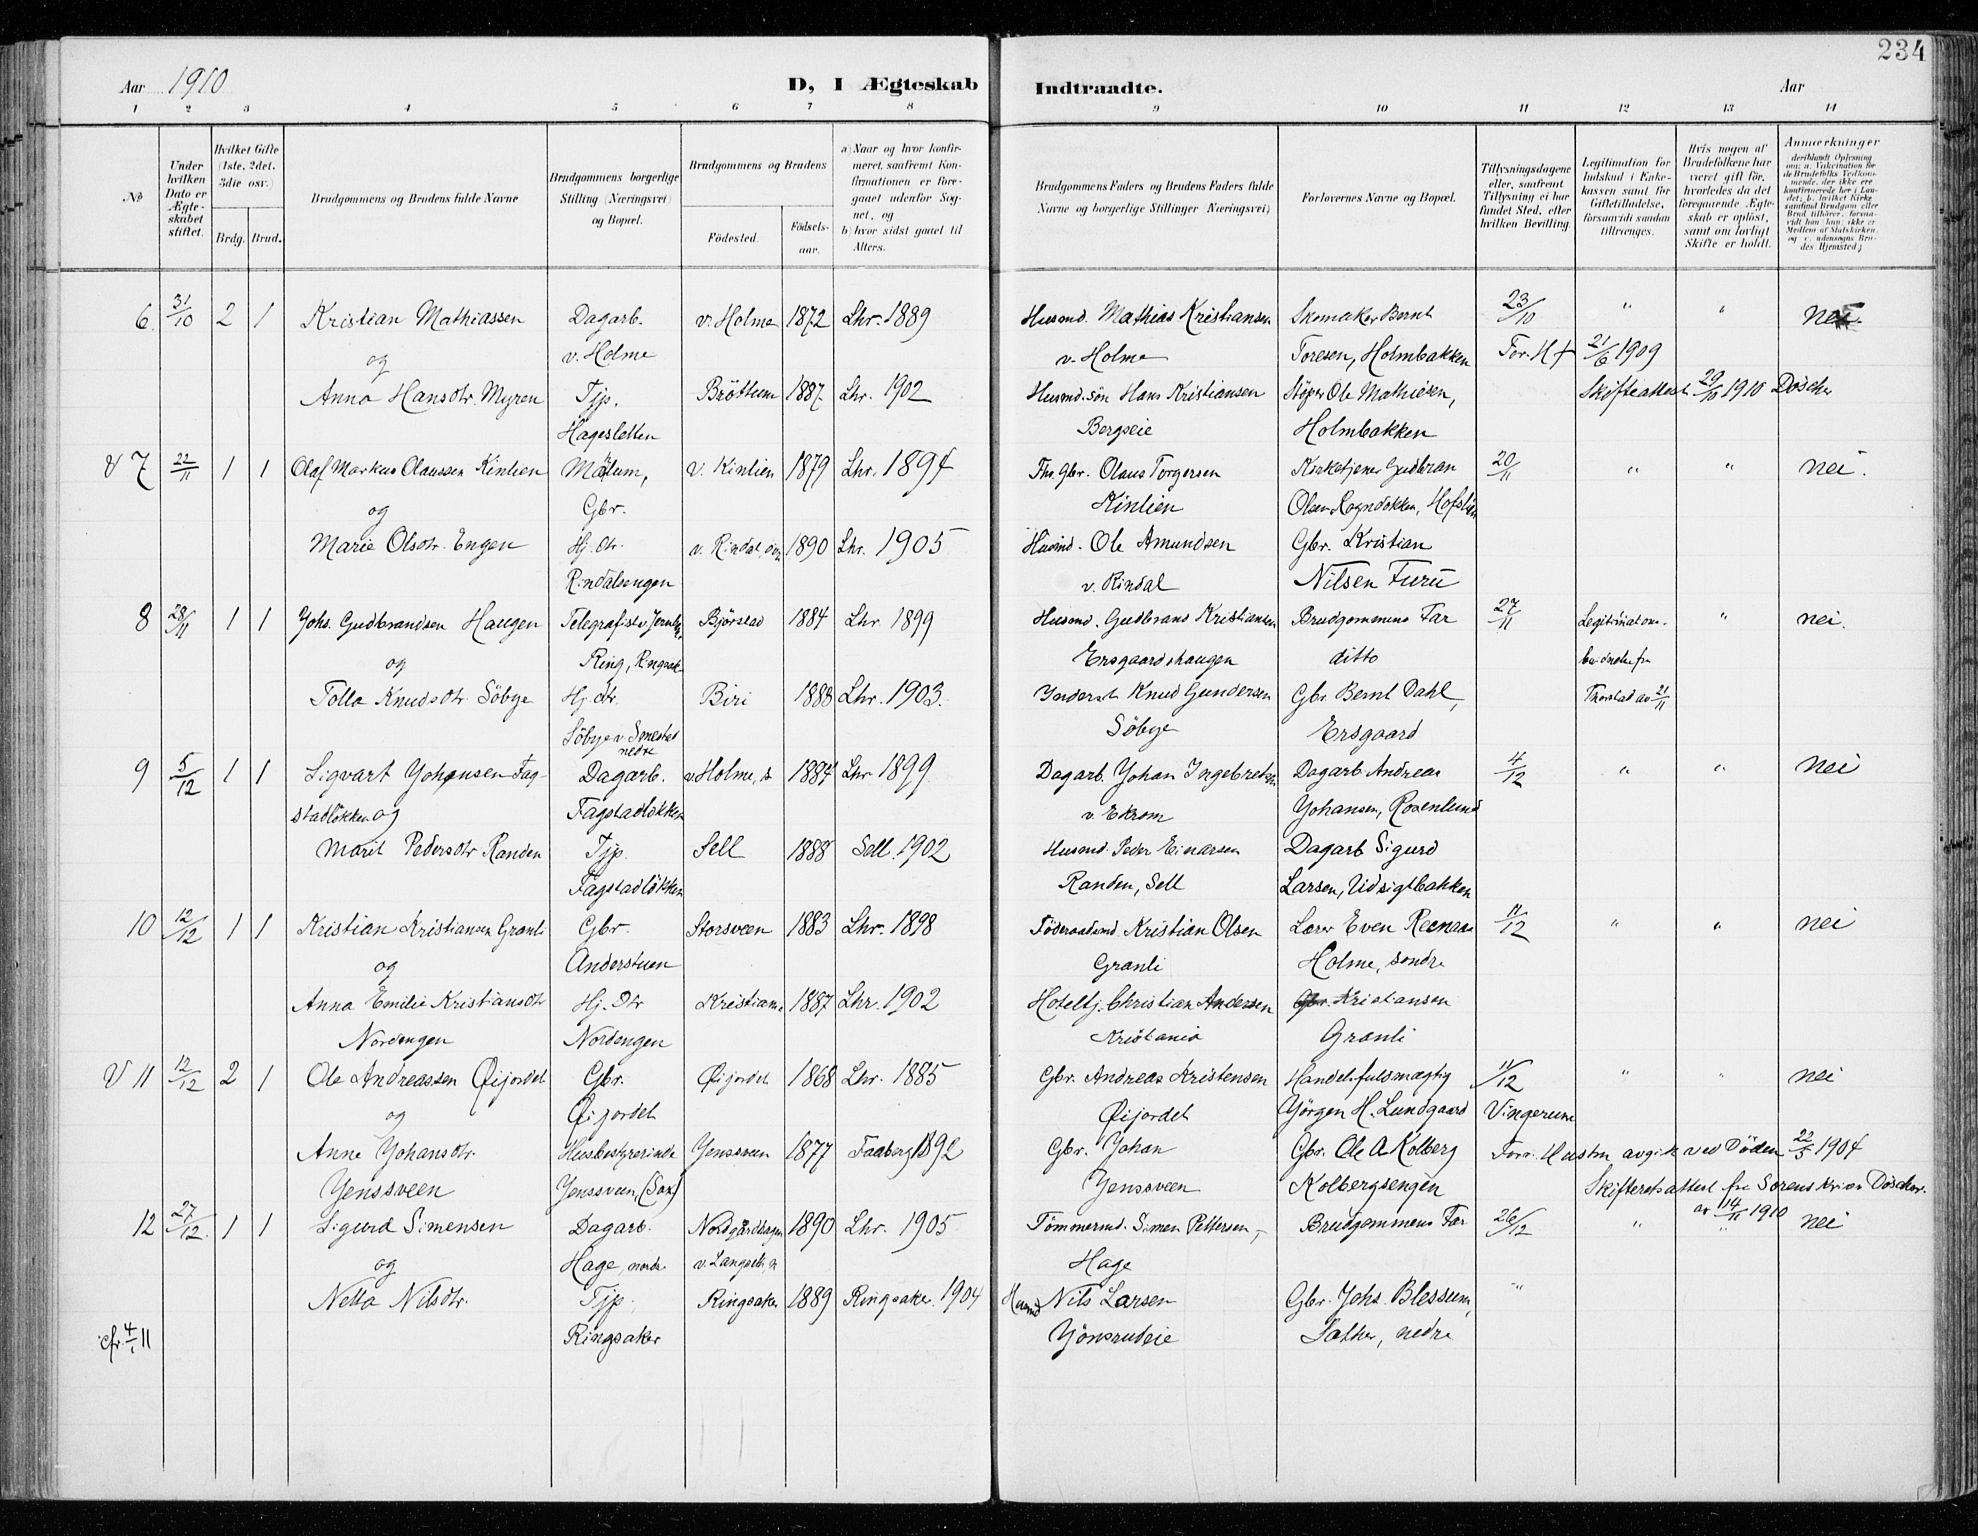 234
Aar 1910
D, I Ægteskab Indtraadte.
Aar
1 2 3 4 5 6 7 8 9 10 11 12 13 14
No
Under hvilken Dato er Ægteskabet stiftet.
Hvilket Gifte (1ste, 2det, 3die osv.)
Brdg. Brud.
Brudgommens og Brudens fulde Navne
Brudgommens borgerlige Stilling (Næringsvei) og Bopæl.
Brudgommens og Brudens
Fødested. Fødselsaar.
a) Naar og hvor konfirmeret, saafremt Konfirmationen er foregaaet udenfor Sognet, og b) hvor sidst gaaet til Alters.
Brudgommens Faders og Brudens Faders fulde Navne og borgerlige Stillinger (Næringsvei)
Forlovernes Navne og Bopæl.
Tillysningsdagene eller, saafremt Tillysning ei har fundet Sted, efter hvilken Bevilling.
Legitimation for Indskud i Enkekassen samt for Giftetilladelse, forsaavidt saadan tiltrænges.
Hvis nogen af Brudefolkene har været gift før, hvorledes da det foregaaende Ægteskab er opløst, samt om lovligt Skifte er holdt.
Anmærkninger
6 31/10 2 1 Kristian Mathiassen Dagarb. v. Holme 1872 Lhr. 1889 Husmd. Mathias Kristiansen Skomaker Bernt 23/10 " " nei
og v. Holme v. Holme Toresen, Holmbakken For. H † 21/6 1909
Anna Hansdtr. Myren Tjp. Brøttum 1887 Lhr. 1902 Husmd. søn Hans Kristiansen Støper Ole Mathiesen, Skifteattest 29/10 1910
Hagesletten Bergseie Holmbakken
V 7 22/11 1 1 Olaf Markus Olaussen Kinlien v. Kinlien 1879 Lhr. 1894 Fhv. Gbr. Olaus Torgersen Kirketjener Gudbran 20/11 " " nei.
og Gbr. Kinlien Olsen Rogndokken,
Marie Olsdtr. Engen Hj. dtr. v. Rindal, 1890 Lhr. 1905 Husmd. Ole Amundsen Gbr. Kristian
Rindalsengen v. Rindal Nilsen Furu
8 28/11 1 1 Johs. Gudbrandsen Haugen Telegrafist v. Bjørstad 1884 Lhr. 1899 Husmd. Gudbrand Kristiansen Brudgommens Far 27/11 " nei.
og Ring, Ringsak. Ersgaardshaugen ditto
Tolla Knudsdtr. Søbye Hj. dtr. Biri 1888 Lhr. 1903. Inderst Knud Gundersen Gbr. Bernt Dahl, av 21/11
Søbye v. Smestad nedre Søbye Ersgaard
9 5/12 1 1 Sigvart Johansen Fag- Dagarb. v. Holme, s 1884 Lhr. 1899 Dagarb. Johan Ingebretsen Dagarb. Andreas 4/12 " " nei
stadløkken og Fagstadløkken v. Ekrom Johansen, Rosenlund
Marit Pedersdtr. Randen Tjp. Sell 1888 Sell. 1902 Husmd. Peder Einarsen Dagarb. Sigurd
Fagstadløkken Randen, Sell Larsen, Udsigtbakken
10 12/12 1 1 Kristian Kristiansen Granli Gbr. Storsveen 1883 Lhr. 1898 Føderaadsmd. Kristian Olsen Lærer Even Reenaas 11/12 " " nei
og Anderstuen Granli Holme, søndre
Anna Emilie Kristiansdtr. Hj. Dtr. Kristiania 1887 Lhr. 1902 Hotelbj. Christian Andersen Kristiansen
Nordengen Nordengen Kristiania Granli
V 11 12/12 2 1 Ole Andreassen Øijordet Gbr. Øijordet 1868 Lhr. 1885 Gbr. Andreas Kristensen Handelsfulsmægtig 11/12 " " nei
og Øijordet Øijordet Jørgen H. Lundgaard Vingerum
Anne Johansdtr. Husbestyrerinde Jenssveen 1877 Faaberg 1892 Gbr. Johan Gbr. Ole A Kolberg Forr. Hustru avgik ved Døden 22/5 1904
Jenssveen Jenssveen, (Sax) Jenssveen Kolbergsengen Skifteretsattest fra Sorenskriver av 14/11 1910
12 27/12 1 1 Sigurd Simensen Dagarb. Nordgårdhagen 1890 Lhr. 1905 Tømmermd. Simen Pettersen, Brudgommens Far 26/12 " nei
og Hage, nordr. v. Langseth, n Hage
Netta Nilsdtr. Tjp. Ringsaker 1889 Ringsaker 1904 Husmd. Nils Larsen Gbr. Johs. Blessum, "
cfr. 4/1 11 Ringsaker Jønsrudeie Sæther, nedre